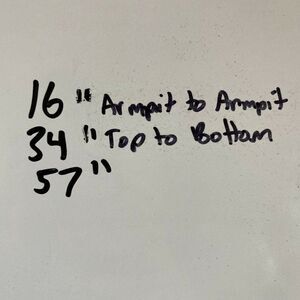 16" Armpit to Armpit
34" Top to Bottom
57"